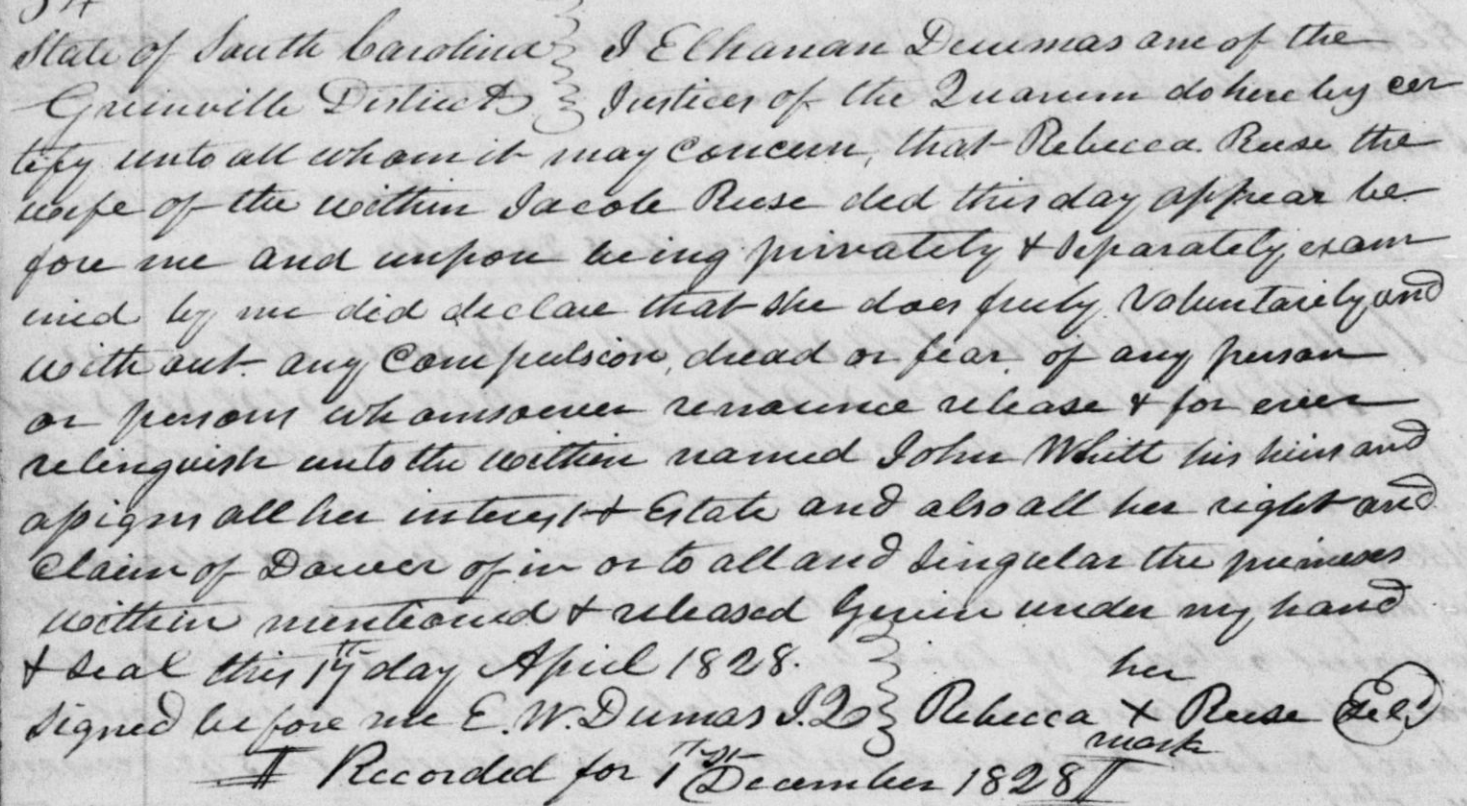 State of South Carolina I Elhanan Duumas one of the
Greenville District Justices of the Quarum do hereby cer
tify unto all whom it may Concern, that Rebecca Reese the
wife of the within Jacob Reese did this day appear be
fore me and unpon being privately & Separately exam
ined by me did declare that she does freely Voluntarily and
with out any Compulsion, dread or fear of any person
or persons whomsoever renounce release & for ever
relinguish unto the within named John Whitt his heirs and
assigns all her interest & Estate and also all her right and
Claim of Dower of in or to all and Singular the premises
within mentioned & released Given under my hand
& seal this 17th day April 1828. her
Signed before me E. W. Dumas J.Q Rebecca X Reese
mark
Recorded for 1st December 1828